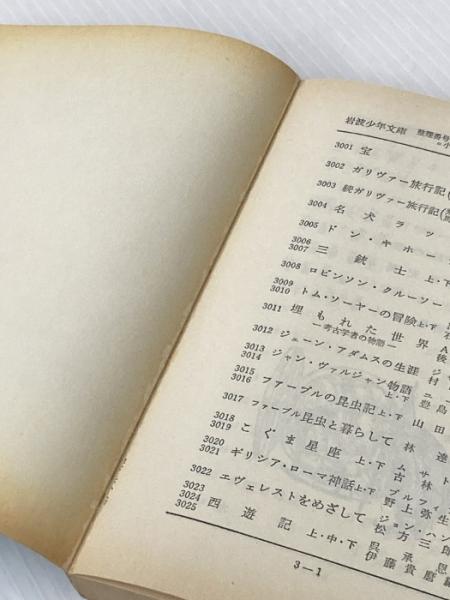 岩波少年文庫 整理番号
3001 宝
3002 ガリヴァー旅行記
3003 続ガリヴァー旅行記
3004 名犬ラッ
3005 ドン・キホー
3006
3007 三銃士 上・下
3008 ロビンソン・クルーソー
3009
3010 トム・ソーヤーの冒険 上・下
3011 埋もれた世界 A
―考古学者の物語― 後
3012 ジェーン・アダムスの生涯 ジ 村
3013
3014 ジャン・ヴァルジャン物語 ユー 上・下 豊島
3015
3016 ファーブルの昆虫記 上・下 山田
3017 ファーブル昆虫と暮らして 林達
3018
3019 こぐま星座 上・下 ムサト 古林
3020
3021 ギリシア・ローマ神話 上・下 ブルフィ 野上弥生
3022 エヴェレストをめざして ジョン・ハン 松方三郎
3023
3024
3025 西遊記 上・中・下 呉承恩 伊藤貴麿
3—1